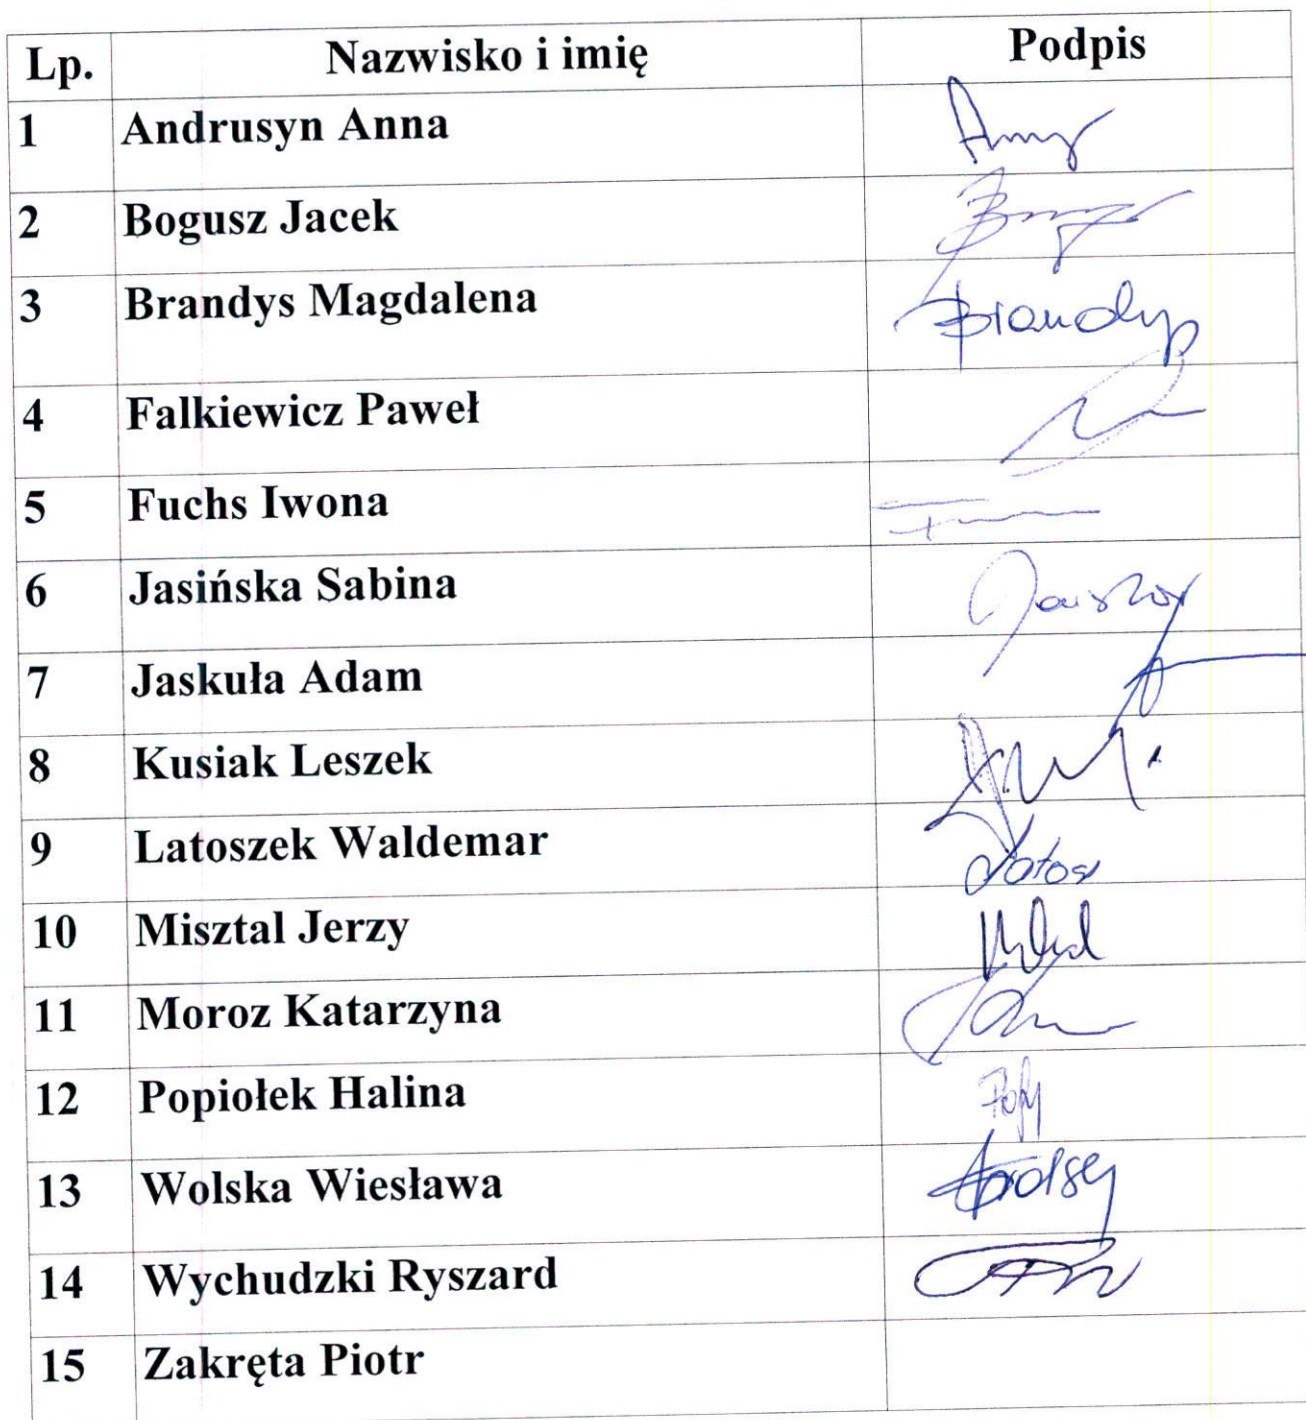 Lp. Nazwisko i imię Podpis
1 Andrusyn Anna
2 Bogusz Jacek
3 Brandys Magdalena Brandys
4 Falkiewicz Paweł
5 Fuchs Iwona
6 Jasińska Sabina
7 Jaskuła Adam
8 Kusiak Leszek
9 Latoszek Waldemar
10 Misztal Jerzy
11 Moroz Katarzyna
12 Popiołek Halina
13 Wolska Wiesława
14 Wychudzki Ryszard
15 Zakręta Piotr